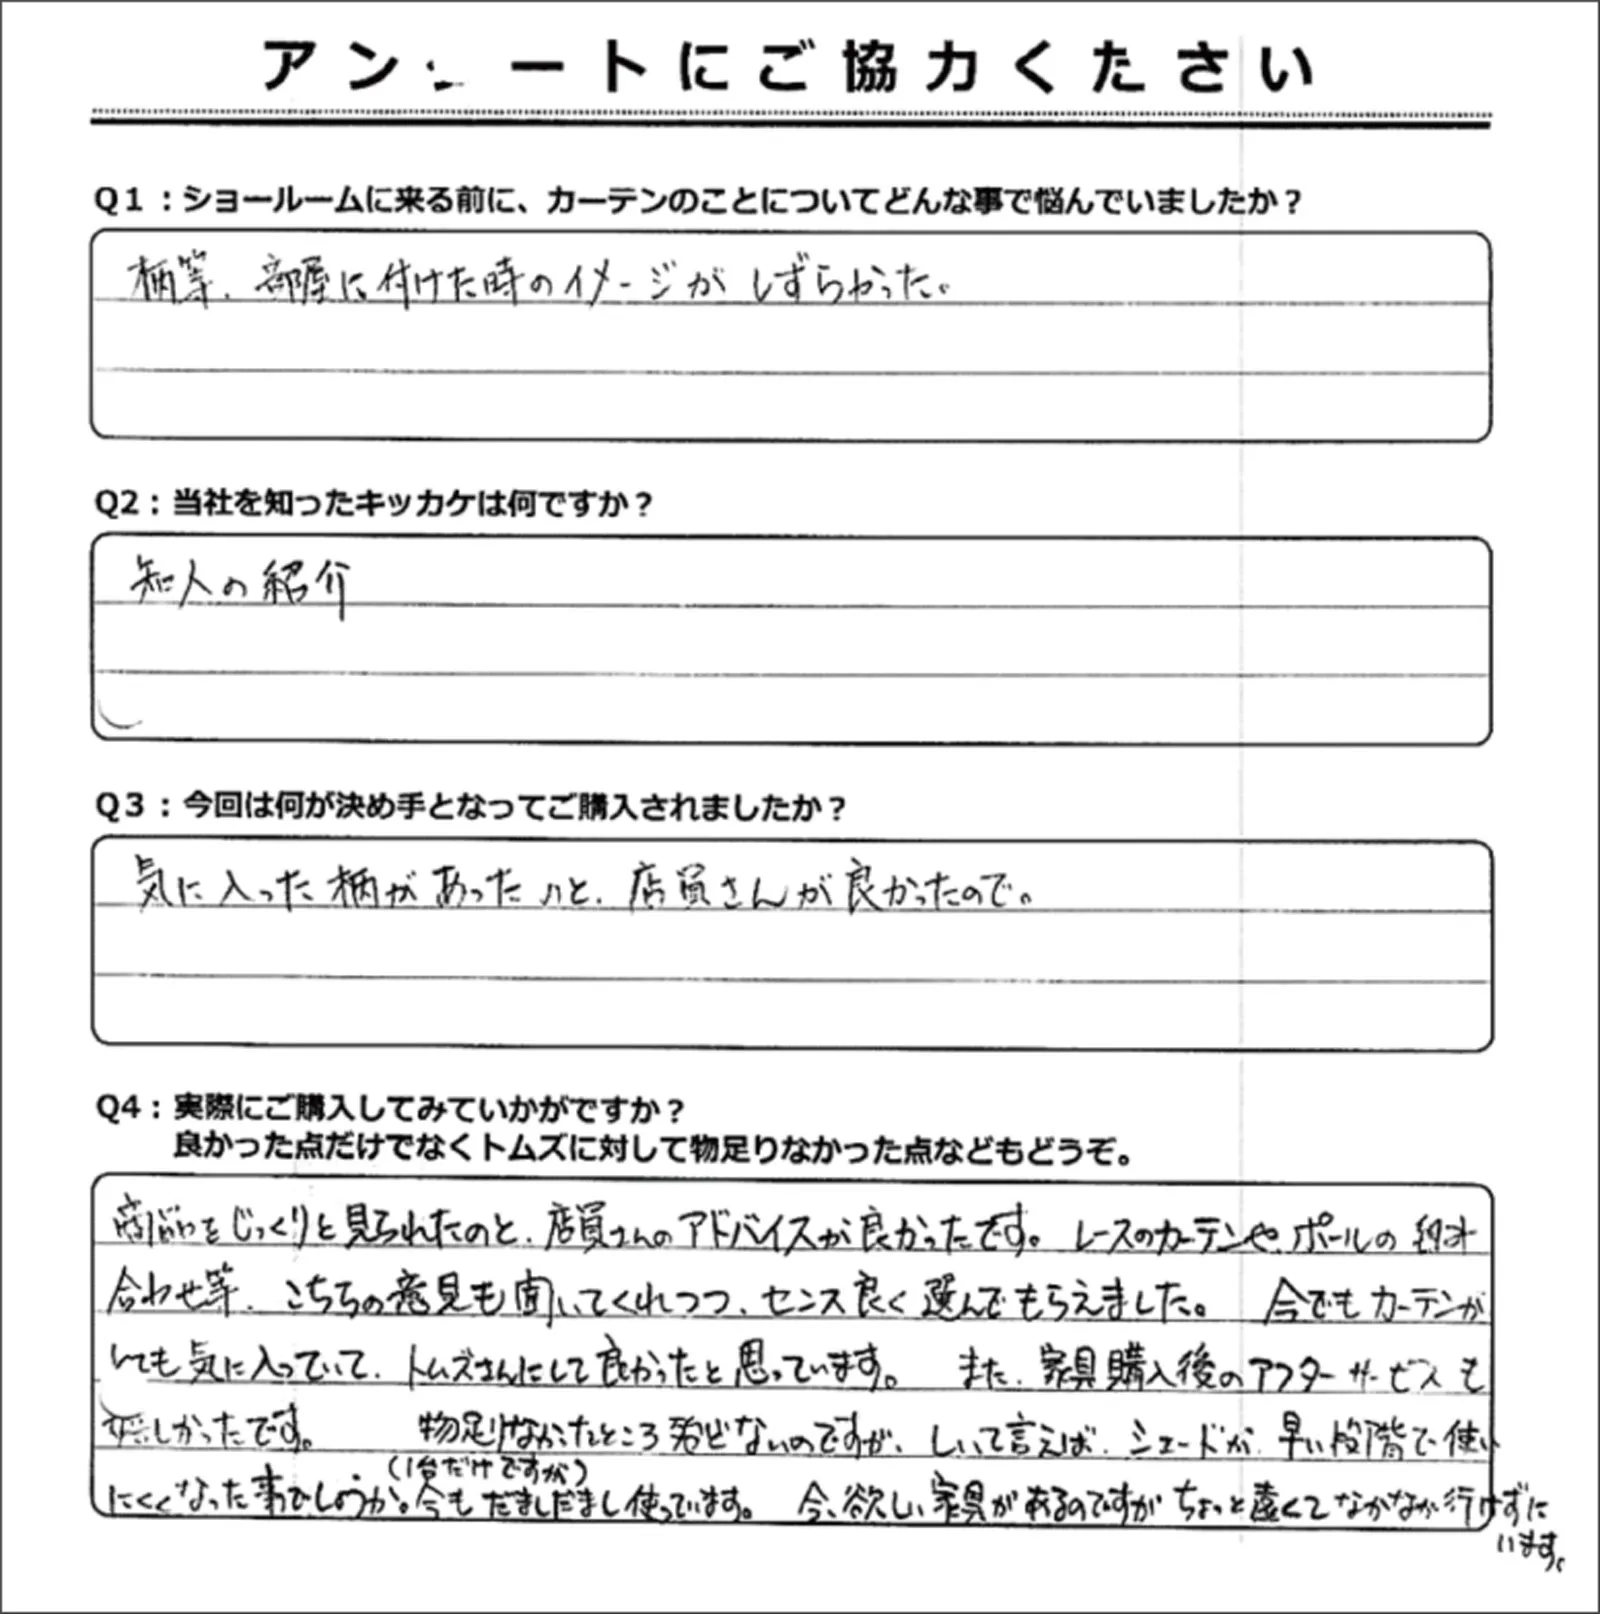 アンケートにご協力ください
Q1：ショールームに来る前に、カーテンのことについてどんな事で悩んでいましたか？
柄等、部屋に付けた時のイメージがしずらかった。
Q2：当社を知ったキッカケは何ですか？
知人の紹介
Q3：今回は何が決め手となってご購入されましたか？
気に入った柄があったのと、店員さんが良かったので。
Q4：実際にご購入してみていかがですか？
良かった点だけでなくトムズに対して物足りなかった点などもどうぞ。
商品をじっくりと見られたのと、店員さんのアドバイスが良かったです。 レースのカーテンや、ポールの組み
合わせ等、こちらの意見も聞いてくれつつ、センス良く選んでもらえました。 今でもカーテンが
とても気に入っていて、トムズさんにして良かったと思っています。 また、家具購入後のアフターサービスも
嬉しかったです。 物足りなかったところ殆どないのですが、しいて言えば、シェードが、早い段階で使い
（1台だけですが）
にくくなった事でしょうか。今もだましだまし使っています。 今、欲しい家具があるのですがちょっと遠くてなかなか行けずに
います。